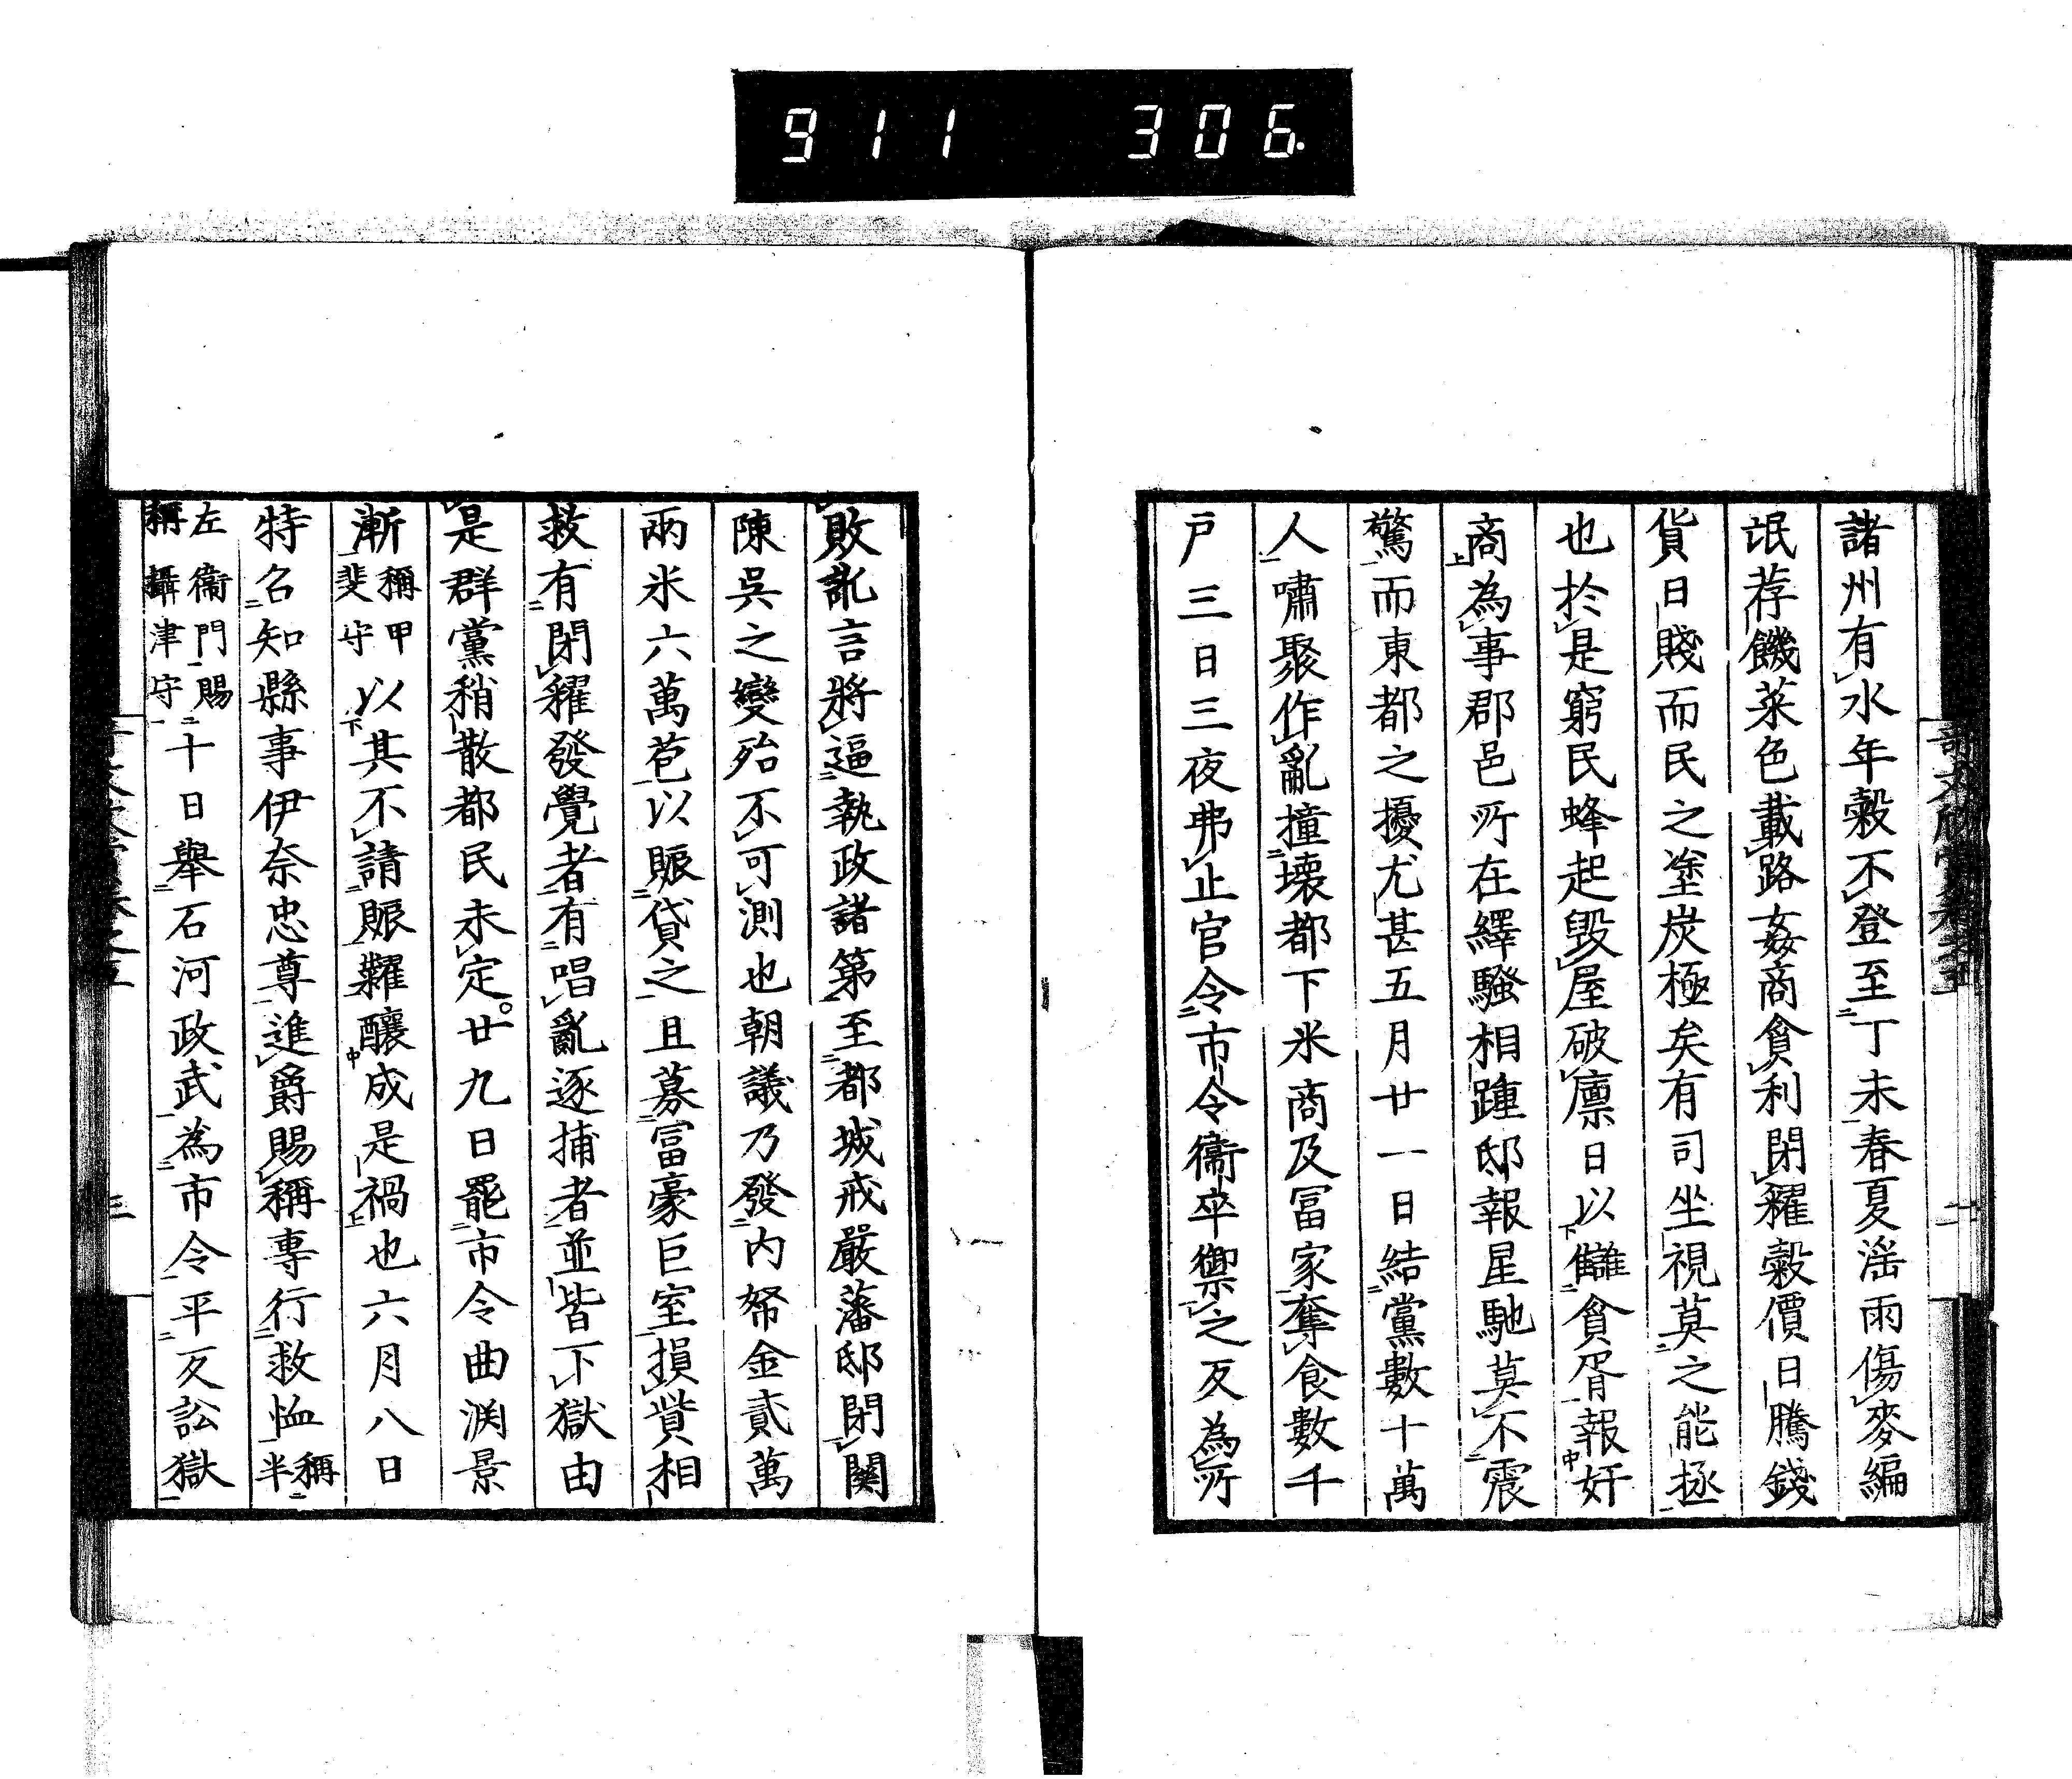 911 306.
諸州有水年穀不登至丁未春夏滛雨傷麥編
氓荐饑菜色載路姦商貪利閉糴穀價日騰錢
貨日賤而民之塗炭極矣有司坐視莫之能拯
也於是窮民蜂起毀屋破廪日以讎貪胥報奸
商為事郡邑所在繹騷相踵邸報星馳莫不震
驚而東都之擾尤甚五月廿一日結黨數十萬
人嘯聚作亂撞壊都下米商及冨家奪食數千
戸三日三夜弗止官令市令衞卒禦之反為所
敗訛言將逼執政諸第至都城戒嚴藩邸閉関
陳呉之變殆不可測也朝議乃發内帑金貳萬
兩米六萬苞以賑貸之且募冨豪巨室損貲相
救有閉糴發覺者有唱亂逐捕者並皆下獄由
是群黨稍散都民未定。廿九日罷市令曲渕景
漸稱甲斐守以其不請賑糶釀成是禍也六月八日
特召知縣事伊奈忠尊進爵賜稱專行救恤稱半
左衞門賜稱攝津守十日舉石河政武為市令平反訟獄